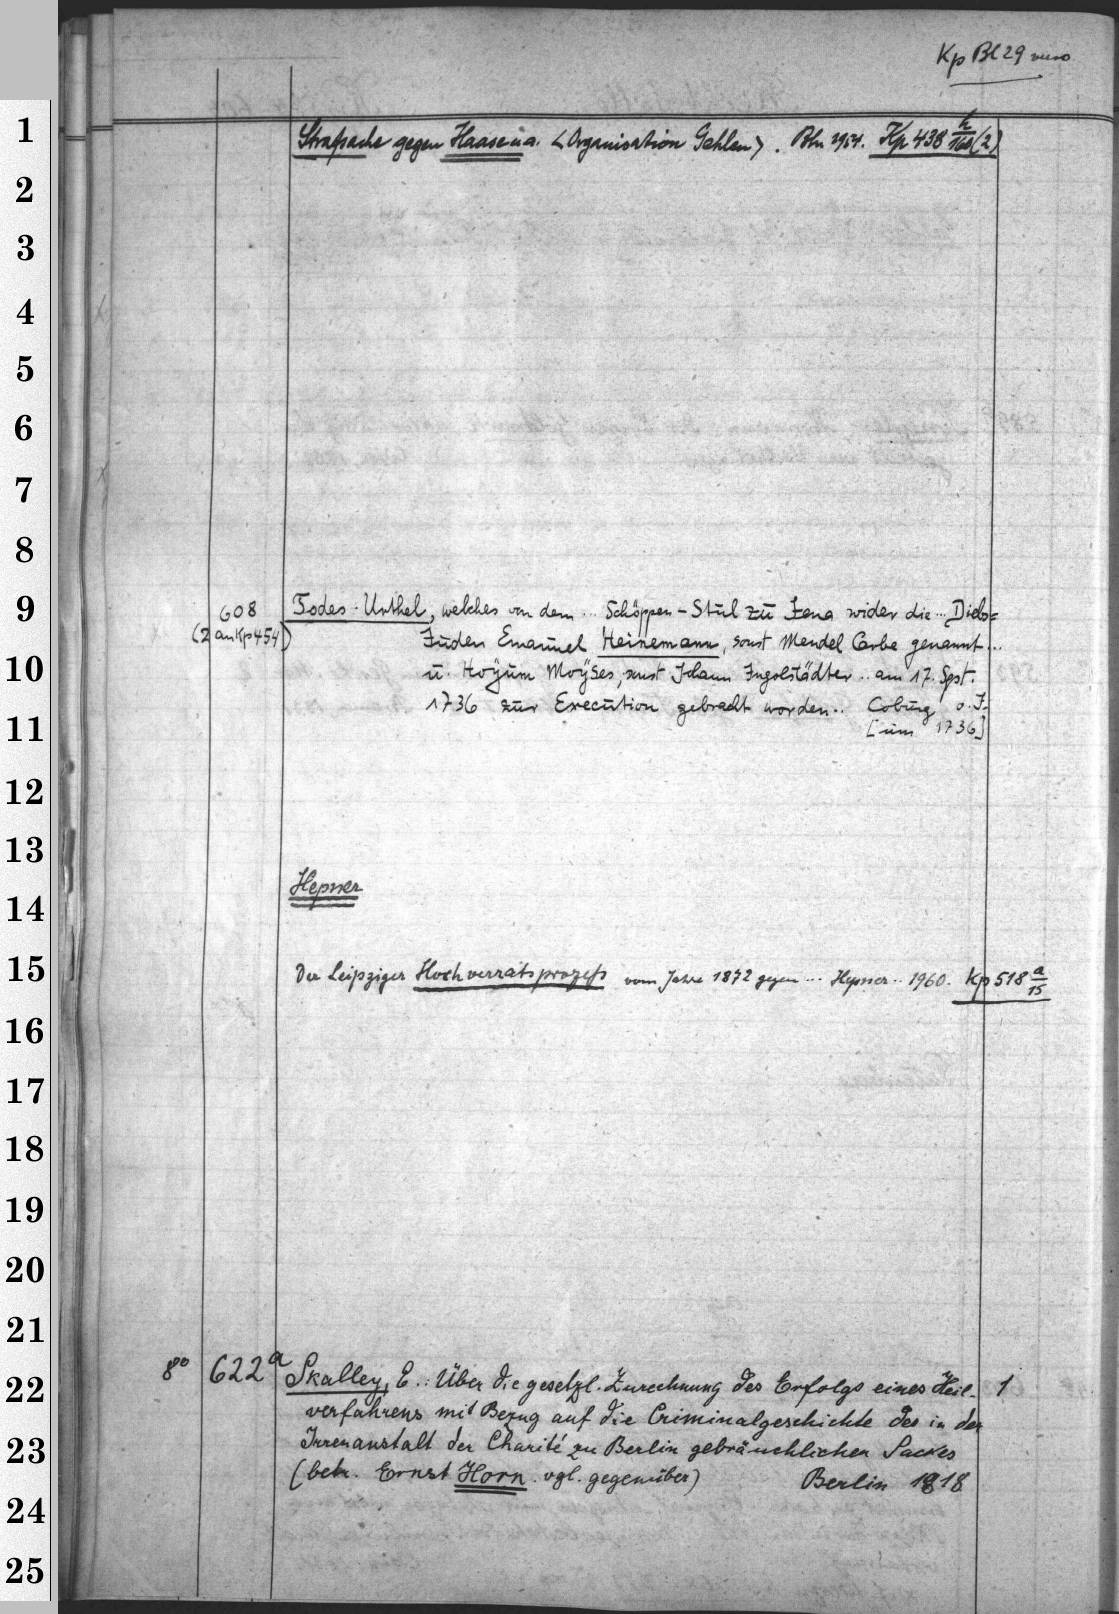 Kp Bl 29 verso
1
Strafsache gegen Haase u.a. <Organisation Gehlen>. Bln 1954. Kp 438 h/160 (2)
2
3
4
5
6
7
8
9
608 Todes-Urthel, welches von dem ... Schöppen-Stul zu Jena wider die ... Diebs=
(2 an Kp 454) Juden Emanuel Heinemann, sonst Mendel Carbe genannt ...
10
u. Hoÿum Moÿses, sonst Johann Ingolstädter .. am 17. Spt.
1736 zur Execution gebracht worden .. Coburg o. J.
11
[um 1736]
12
13
Hepner
14
15
Der Leipziger Hochverratsprozeß vom Jahre 1872 gegen ... Hepner .. 1960. Kp 518 a/15
16
17
18
19
20
21
8° 622a Skalley, E.: Über die gesetzl. Zurechnung des Erfolgs eines Heil- 1
22
verfahrens mit Bezug auf die Criminalgeschichte des in der
23
Irrenanstalt der Charité zu Berlin gebräuchlichen Sackes
(betr. Ernst Horn. vgl. gegenüber) Berlin 1818
24
25